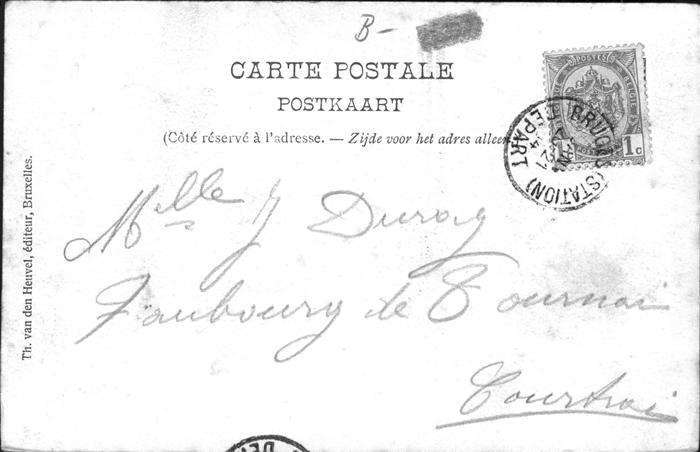 B-
CARTE POSTALE
POSTKAART
(Côté réservé à l'adresse. — Zijde voor het adres alleen
POSTES
1c
BRUGES (STATION)
DEPART
Mlle J Duray
Faubourg de Tournai
Courtrai
Th. van den Heuvel, éditeur, Bruxelles.